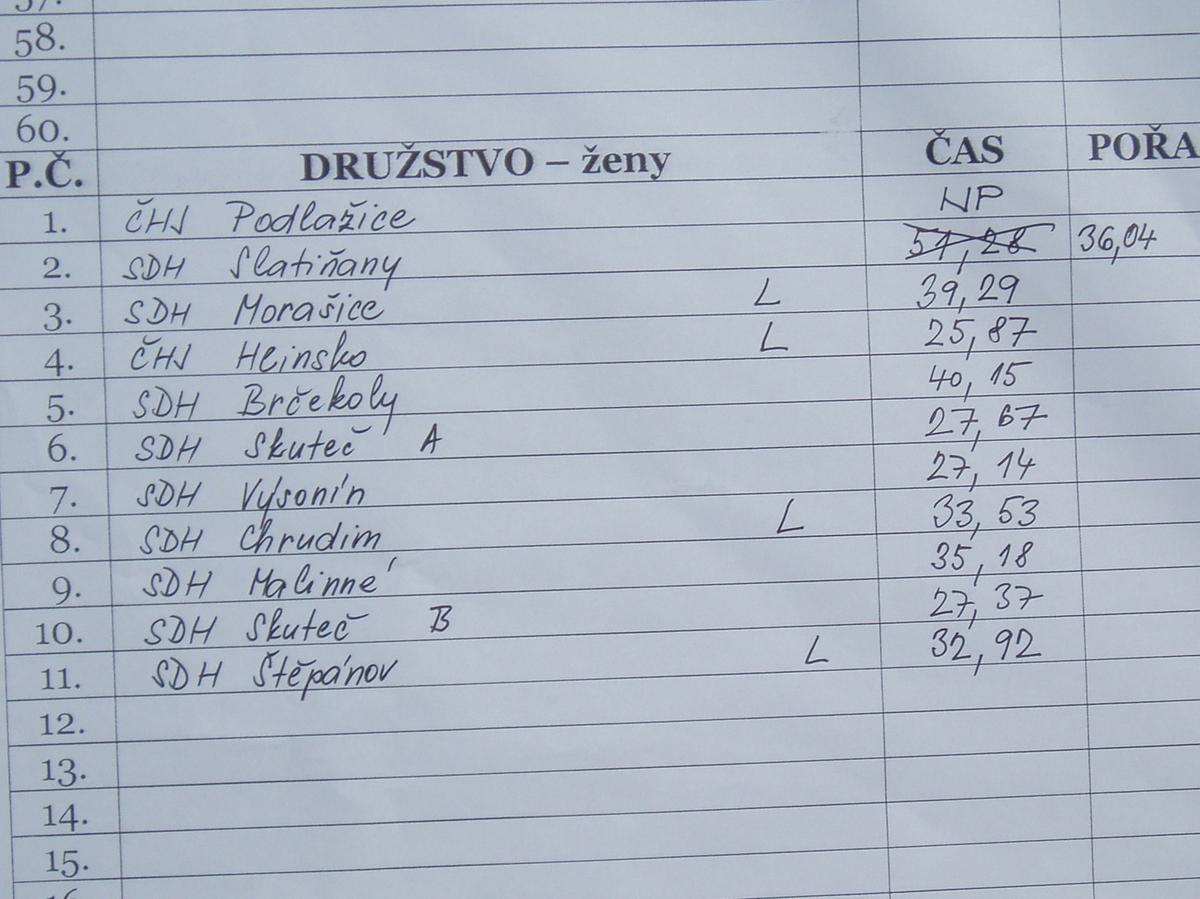 57.
58.
59.
60.
P.Č. DRUŽSTVO – ženy ČAS POŘA
1. ČHJ Podlažice NP
2. SDH Slatiňany 51,28 36,04
3. SDH Morašice L 39,29
4. ČHJ Hlinsko L 25,87
5. SDH Brčekoly 40,15
6. SDH Skuteč A 27,67
7. SDH Vysonín 27,14
8. SDH Chrudim L 33,53
9. SDH Malinné 35,18
10. SDH Skuteč B 27,37
11. SDH Štěpánov L 32,92
12.
13.
14.
15.